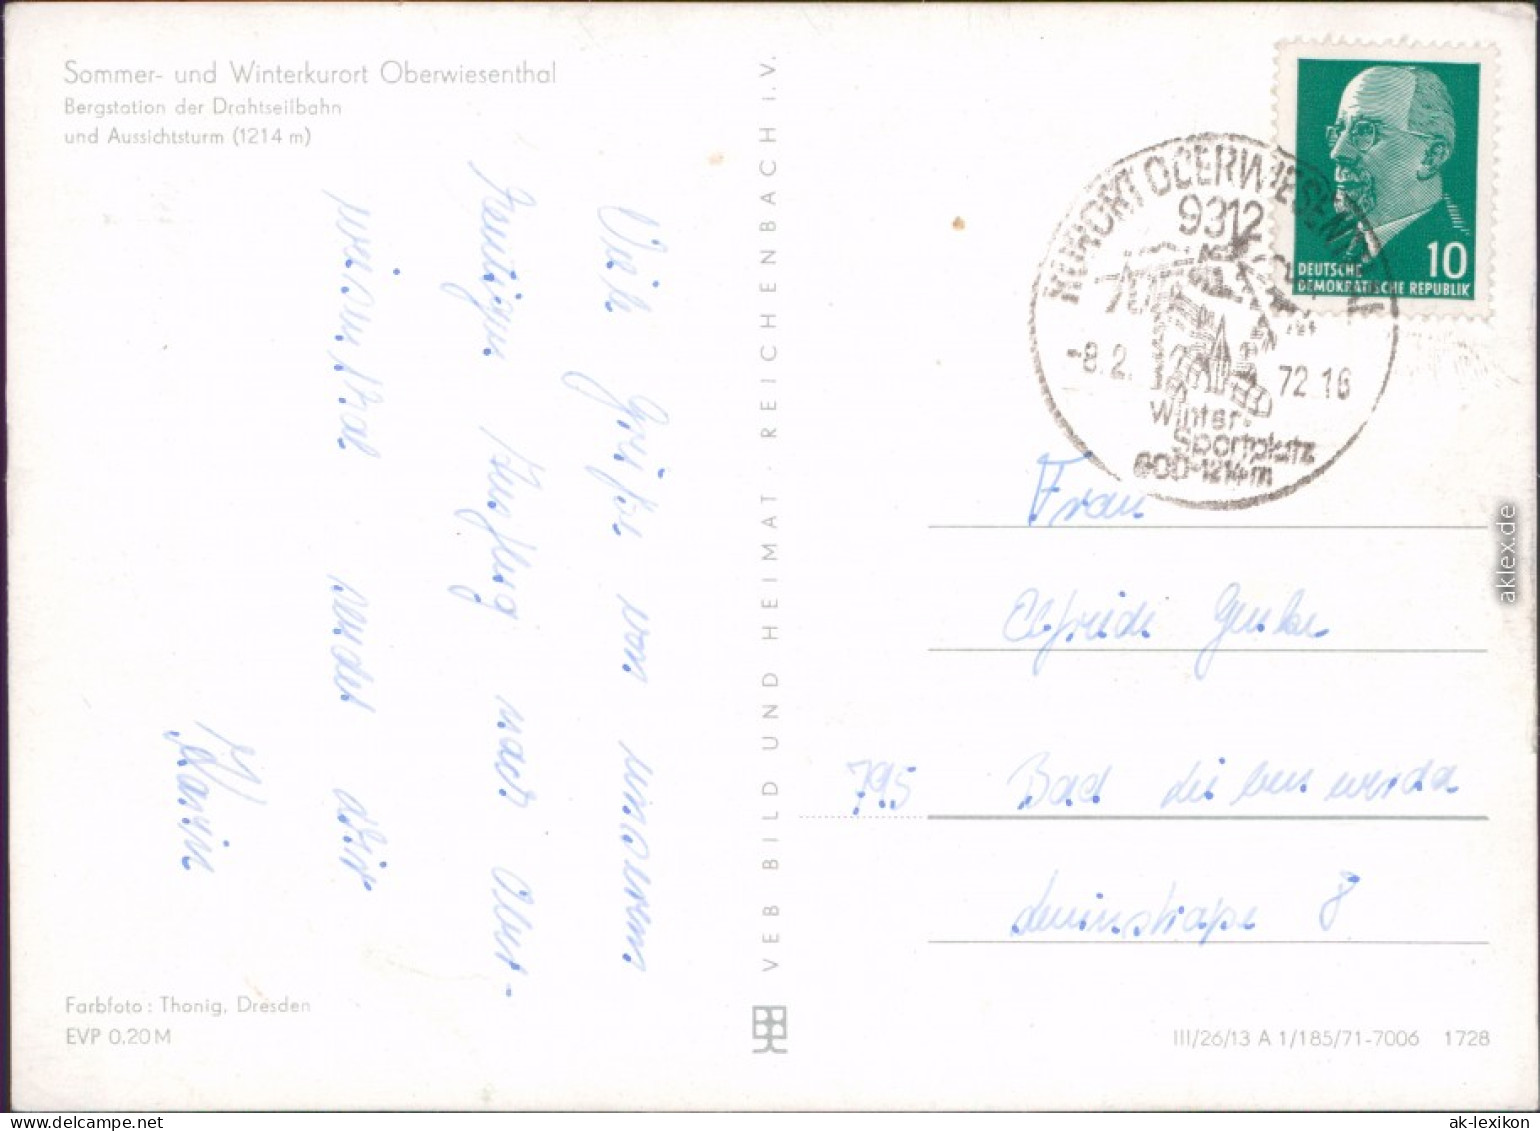 Sommer- und Winterkurort Oberwiesenthal
Bergstation der Drahtseilbahn
und Aussichtsturm (1214 m)
Viele Grüße von unserem
heutigen Ausflug nach Ober-
wiesenthal sendet dir
Karin
Farbfoto: Thonig, Dresden
EVP 0,20 M
VEB BILD UND HEIMAT · REICHENBACH I.V.
KURORT OBERWIESENTHAL
9312
-8.2. 72 16
Winter-
Sportplatz
900-1214m
10
DEUTSCHE
DEMOKRATISCHE REPUBLIK
Frau
Elfriede
795 Bad Liebenwerda
Leninstraße 8
III/26/13 A 1/185/71-7006 1728
aklex.de
ak-lexikon